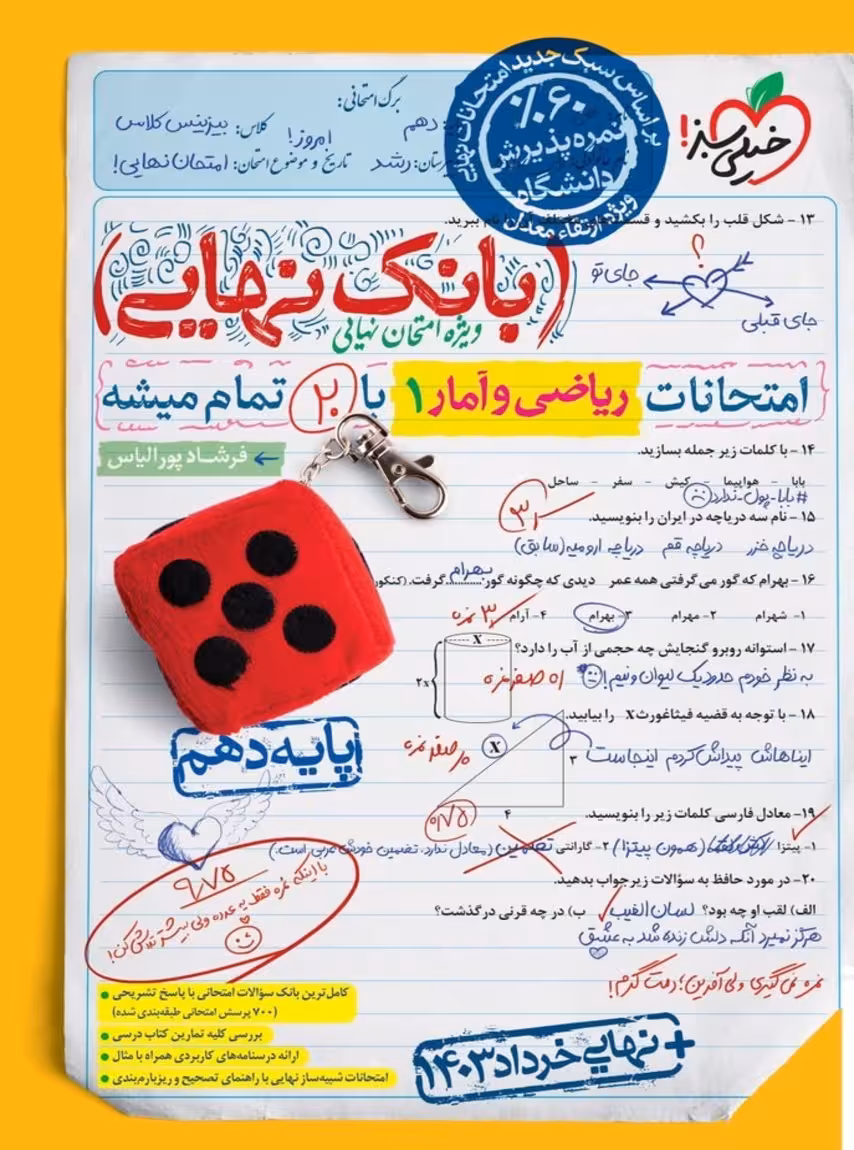 برگ امتحانی:
دهم
کلاس: بیزینس کلاس
امروز!
رشد
تاریخ و موضوع امتحان: امتحان نهایی!
براساس سبک جدید امتحانات نهایی
۶۰٪
نمره پذیرش
دانشگاه
ویژه ارتقاء معدل
خیلی سبز!
۱۳ - شکل قلب را بکشید و نام ببرید.
؟
جای تو
جای قبلی
(بانک نهایی)
ویژه امتحان نهایی
امتحانات ریاضی و آمار ۱ با ۲۰ تمام میشه
فرشاد پورالیاس
۱۴ - با کلمات زیر جمله بسازید.
بابا - هواپیما - کیش - سفر - ساحل
#بابا-پول-ندارد
۱۵ - نام سه دریاچه در ایران را بنویسید.
۳
دریاچه خزر دریاچه قم دریاچه ارومیه (سابق)
۱۶ - بهرام که گور می‌گرفتی همه عمر دیدی که چگونه گور بهرام گرفت. (کنکور
۱- شهرام ۲- مهرام ۳- بهرام ۴- آرام
۳ نمره
۱۷ - استوانه روبرو گنجایش چه حجمی از آب را دارد؟
X
۲x
به نظر خودم حدود یک لیوان و نیم!
صفر نمره
۱۸ - با توجه به قضیه فیثاغورث X را بیابید.
X
۳
۴
ایناهاش پیداش کردم اینجاست
صفر نمره
پایه دهم
۱۹ - معادل فارسی کلمات زیر را بنویسید.
۰/۷۵
۱- پیتزا (همون پیتزا) ۲- گارانتی تضمین (معادل ندارد. تضمین خودش عربی است.)
۲۰ - در مورد حافظ به سؤالات زیر جواب بدهید.
الف) لقب او چه بود؟ لسان الغیب ب) در چه قرنی درگذشت؟
هرگز نمیرد آنکه دلش زنده شد به عشق
نمره نمی‌گیری ولی آفرین؛ دمت گرم!
۹/۷۵
با اینکه نمره فقط یه عدده ولی بیشتر تلاش کن!
کامل‌ترین بانک سؤالات امتحانی با پاسخ تشریحی
(۷۰۰ پرسش امتحانی طبقه‌بندی شده)
بررسی کلیه تمارین کتاب درسی
ارائه درسنامه‌های کاربردی همراه با مثال
امتحانات شبیه‌ساز نهایی با راهنمای تصحیح و ریزبارم‌بندی
+ نهایی خرداد ۱۴۰۳